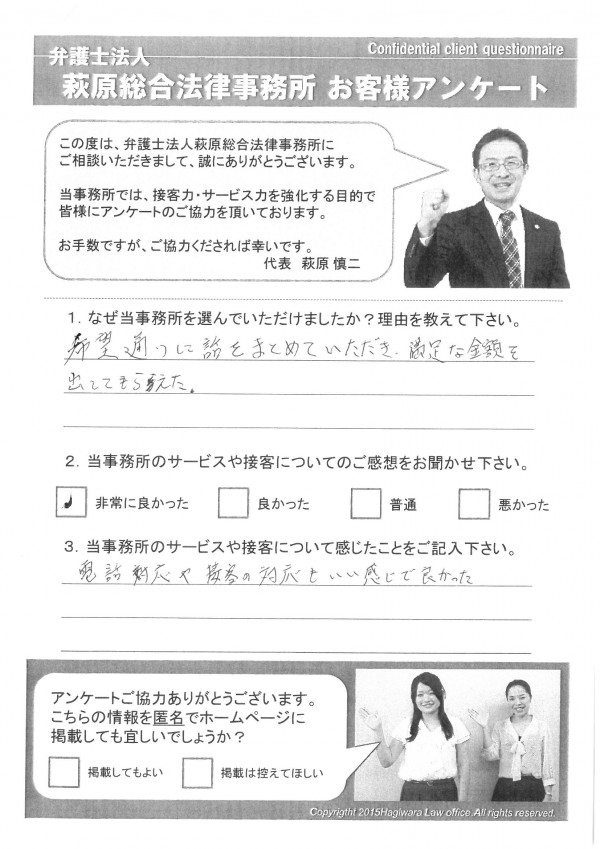 弁護士法人
Confidential client questionnaire
萩原総合法律事務所 お客様アンケート
この度は、弁護士法人萩原総合法律事務所に
ご相談いただきまして、誠にありがとうございます。
当事務所では、接客力・サービス力を強化する目的で
皆様にアンケートのご協力を頂いております。
お手数ですが、ご協力くだされば幸いです。
代表 萩原 慎二
1. なぜ当事務所を選んでいただけましたか？理由を教えて下さい。
希望通りに話をまとめていただき、満足な金額を
出してもらえた。
2. 当事務所のサービスや接客についてのご感想をお聞かせ下さい。
非常に良かった 良かった 普通 悪かった
3. 当事務所のサービスや接客について感じたことをご記入下さい。
電話対応や接客の対応もいい感じで良かった
アンケートご協力ありがとうございます。
こちらの情報を匿名でホームページに
掲載しても宜しいでしょうか？
掲載してもよい 掲載は控えてほしい
Copyrigtht 2015Hagiwara Law office.All rights reserved.